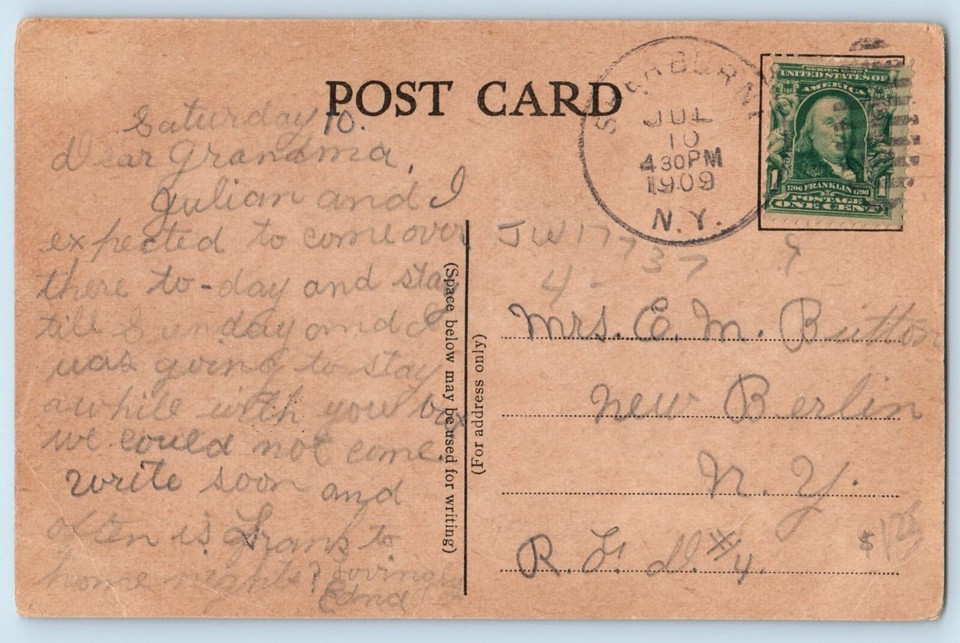 POST CARD
SHERBURNE
JUL
10
4 30PM
1909
N.Y.
SERIES 1902
UNITED STATES OF
AMERICA
1 1
1706 FRANKLIN 1790
POSTAGE
ONE CENT
Saturday 10.
Dear Grandma,
Julian and I
expected to come over
there to-day and stay
till Sunday and I
was going to stay
awhile with you but
we could not come.
Write soon and
often is Frank to
home nights? Lovingly
Edna
(Space below may be used for writing)
(For address only)
JW1777 37 9
4-
Mrs. E. M. Button
New Berlin
N. Y.
R. F. D. #4.